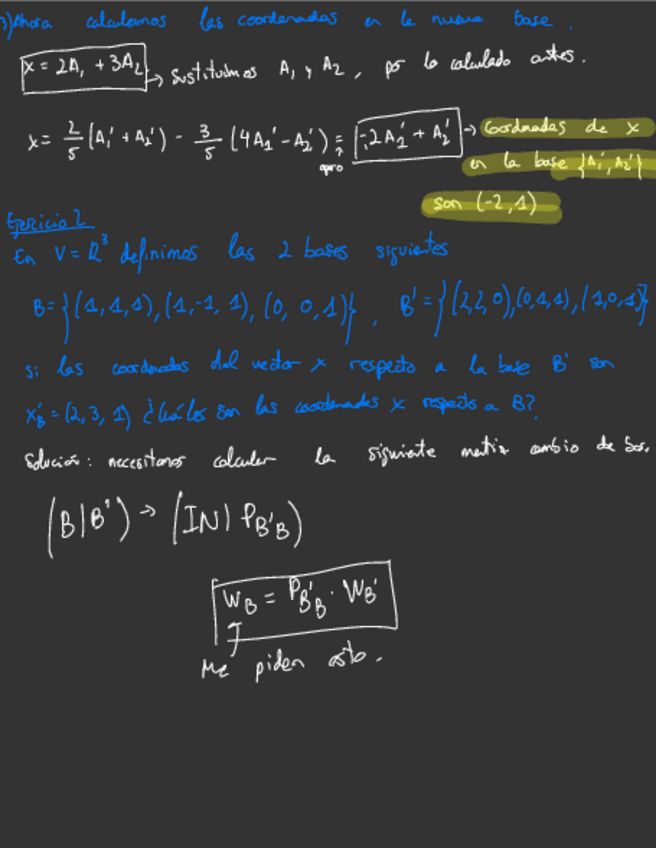 3) Ahora calculamos las coordenadas en la nueva base.
x = 2A₁ + 3A₂ → Sustituimos A₁ y A₂, por lo calculado antes.
x = 2/5 (A₁' + A₂') - 3/5 (4A₁' - A₂') = -2A₁' + A₂' → Coordenadas de x
opero
en la base {A₁', A₂'}
son (-2, 1)
Ejercicio 2
En V = R³ definimos las 2 bases siguientes
B = {(1,1,1), (1,-1,1), (0,0,1)}, B' = {(2,2,0), (0,1,1), (1,0,1)}
si las coordenadas del vector x respecto a la base B' son
x'B = (2,3,1) ¿Cuáles son las coordenadas x respecto a B?
Solución: necesitamos calcular la siguiente matriz cambio de bas.
(B|B') → (IN| P_B'B)
W_B = P_B'B · W_B'
Me piden esto.